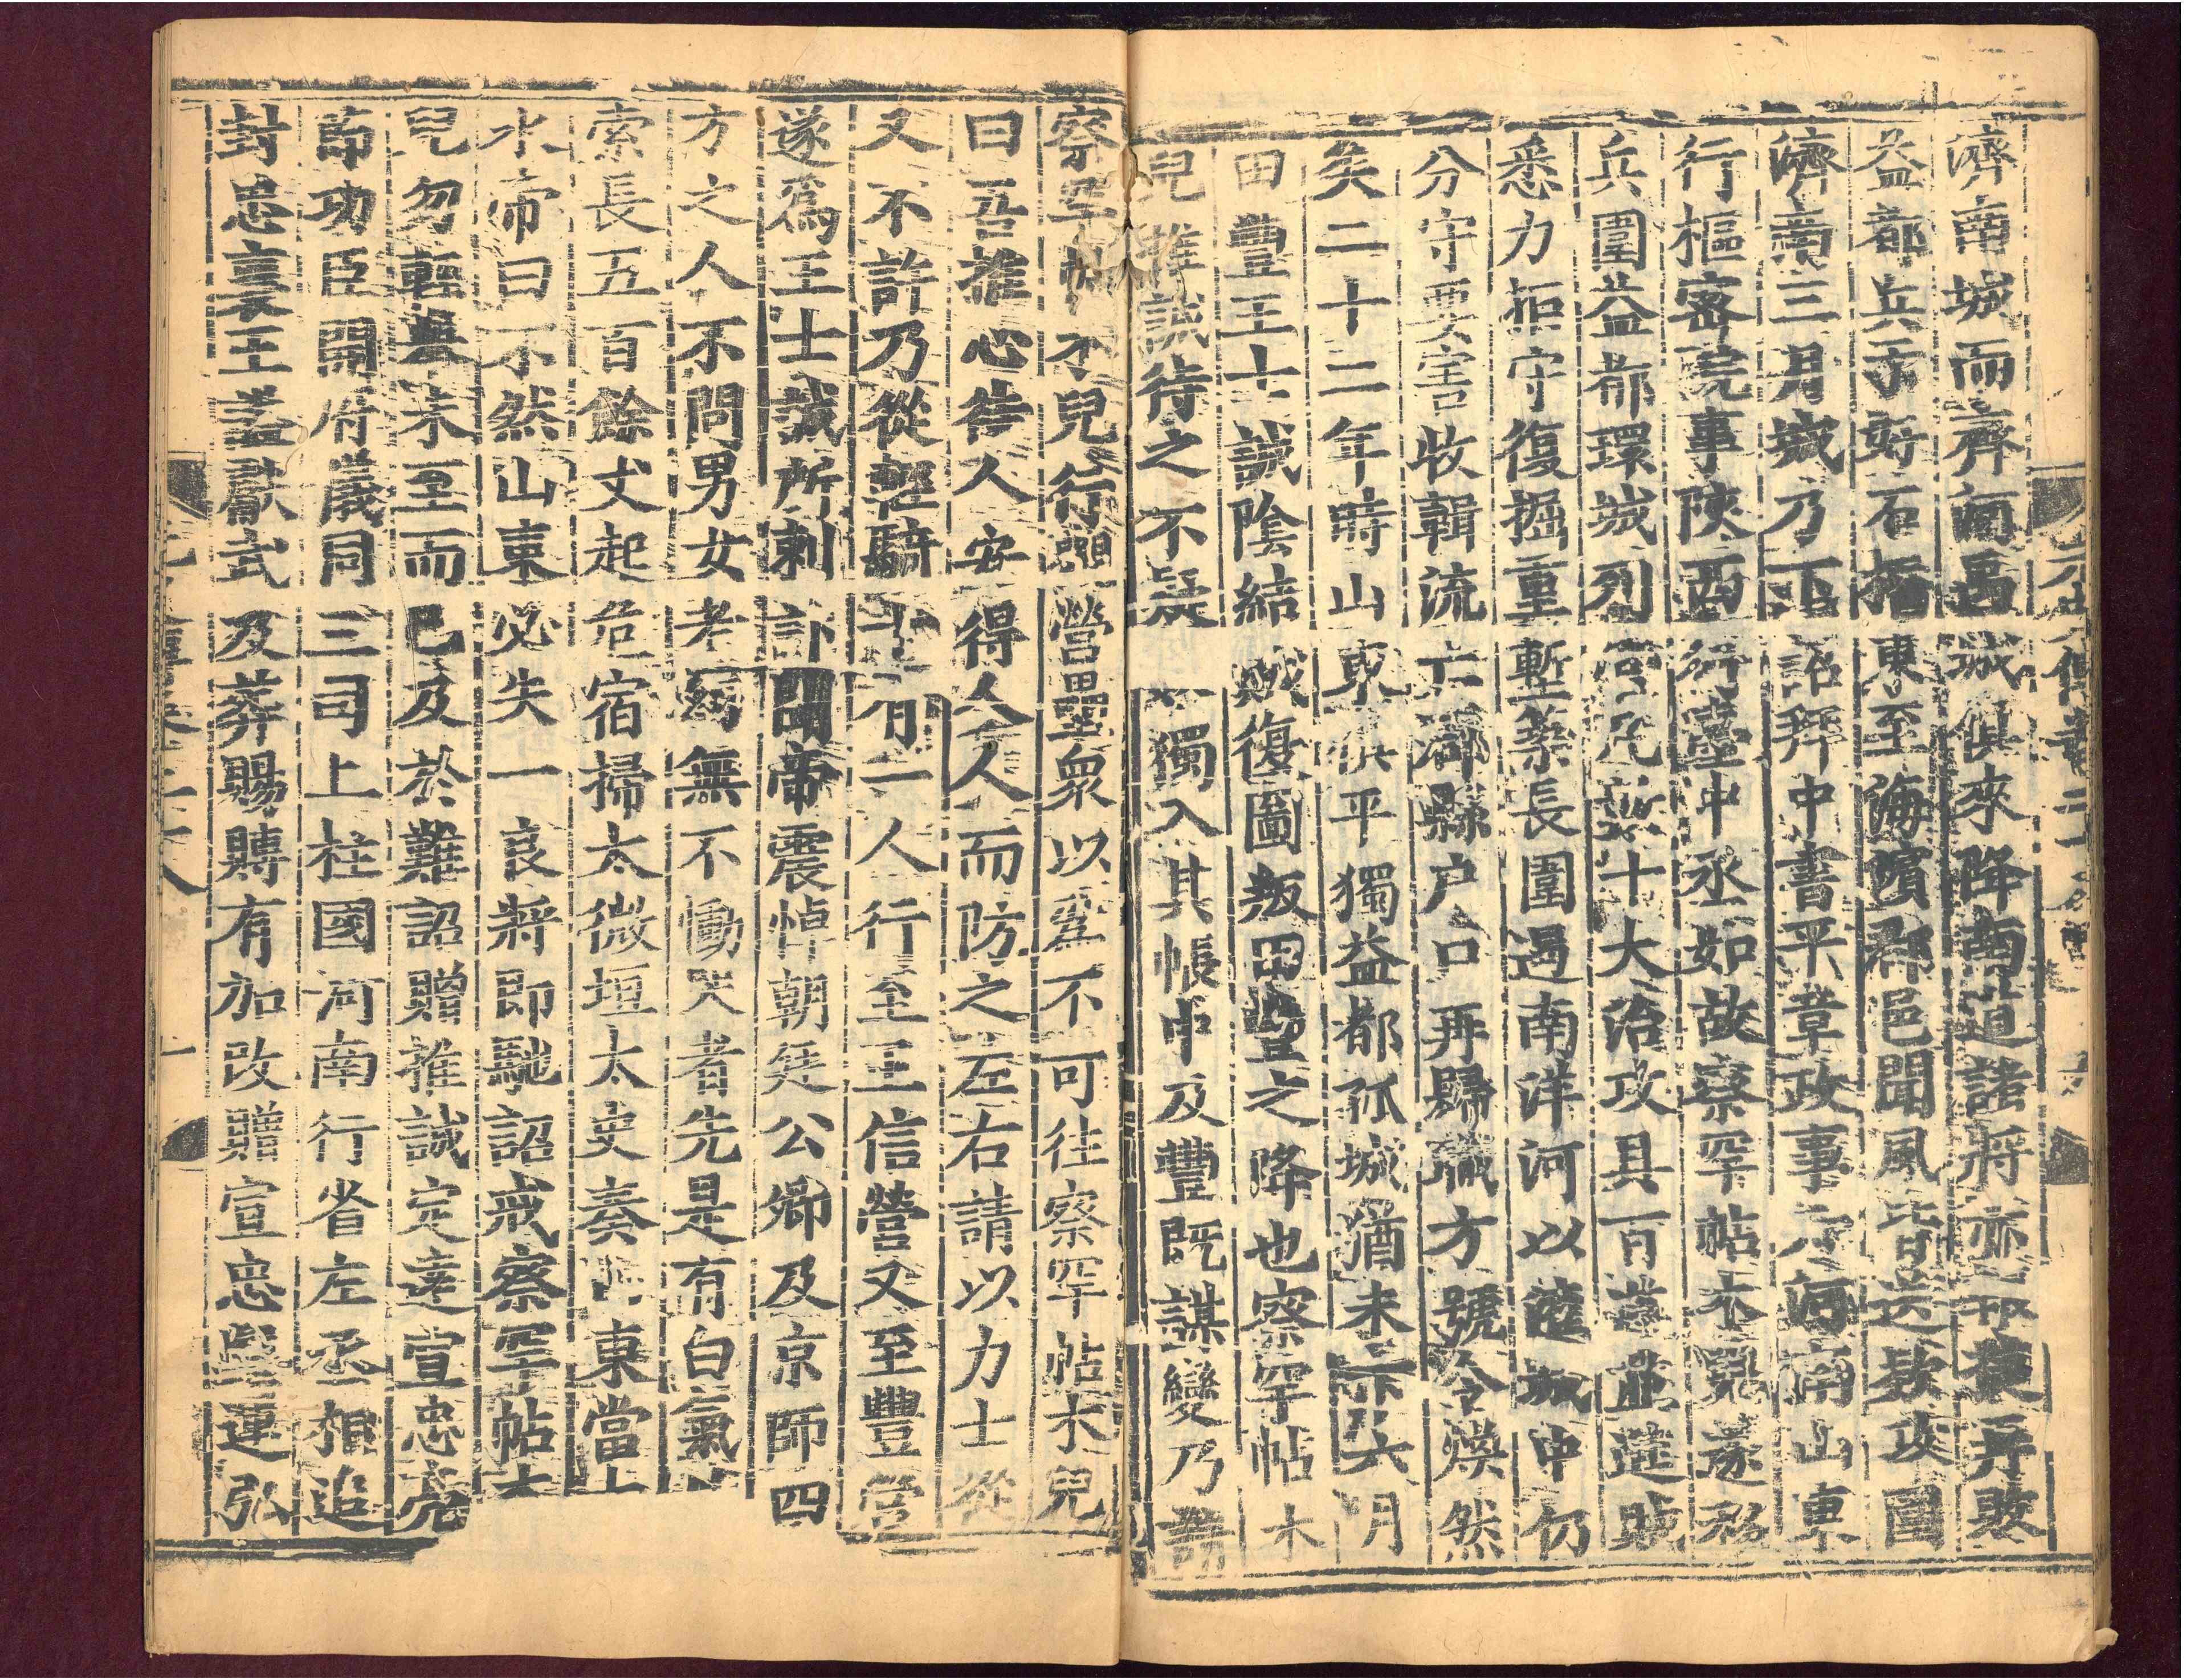 濟南城而齊河禹城俱來降南道諸將亦報捷再敗
益都兵于好石橋東至海濱郡邑聞風皆送款攻圍
濟南三月城乃下詔拜中書平章政事河南山東
行樞密院事陝西行臺中丞如故察罕帖木兒遂移
兵圍益都環城列營凡數十大治攻具百道並進賊
悉力拒守復掘重塹築長圍遏南洋河以灌城中仍
分守要害收輯流亡郡縣戶口再歸職方號令煥然
矣二十二年時山東俱平獨益都孤城猶未下六月
田豐王士誠陰結賊復圖叛田豐之降也察罕帖木
兒推誠待之不疑獨入其帳中及豐既謀變乃請
察罕帖木兒行觀營壘眾以為不可往察罕帖木兒
曰吾推心待人安得人人而防之左右請以力士從
又不許乃從輕騎十有一人行至王信營又至豐營
遂為王士誠所刺訃聞帝震悼朝廷公卿及京師四
方之人不問男女老幼無不慟哭者先是有白氣
索長五百餘丈起危宿掃太微垣太史奏山東當大
水帝曰不然山東必失一良將即馳詔戒察罕帖木
兒勿輕舉未至而已及於難詔贈推誠定遠宣忠亮
節功臣開府儀同三司上柱國河南行省左丞相追
封忠襄王諡獻武及葬賜賻有加改贈宣忠興運弘